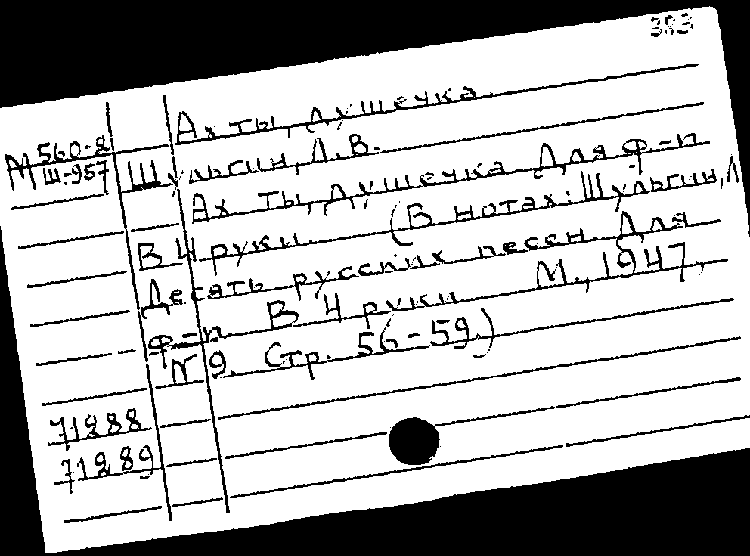 383
Ах ты, душечка.
М 560-2
Ш-957
Шульгин, Л.В.
Ах ты, душечка. Для ф-п
В 4 руки. (В нотах: Шульгин, Л
Десять русских песен. Для
ф-п В 4 руки М., 1947,
N 9. Стр. 56-59.)
71288
71289